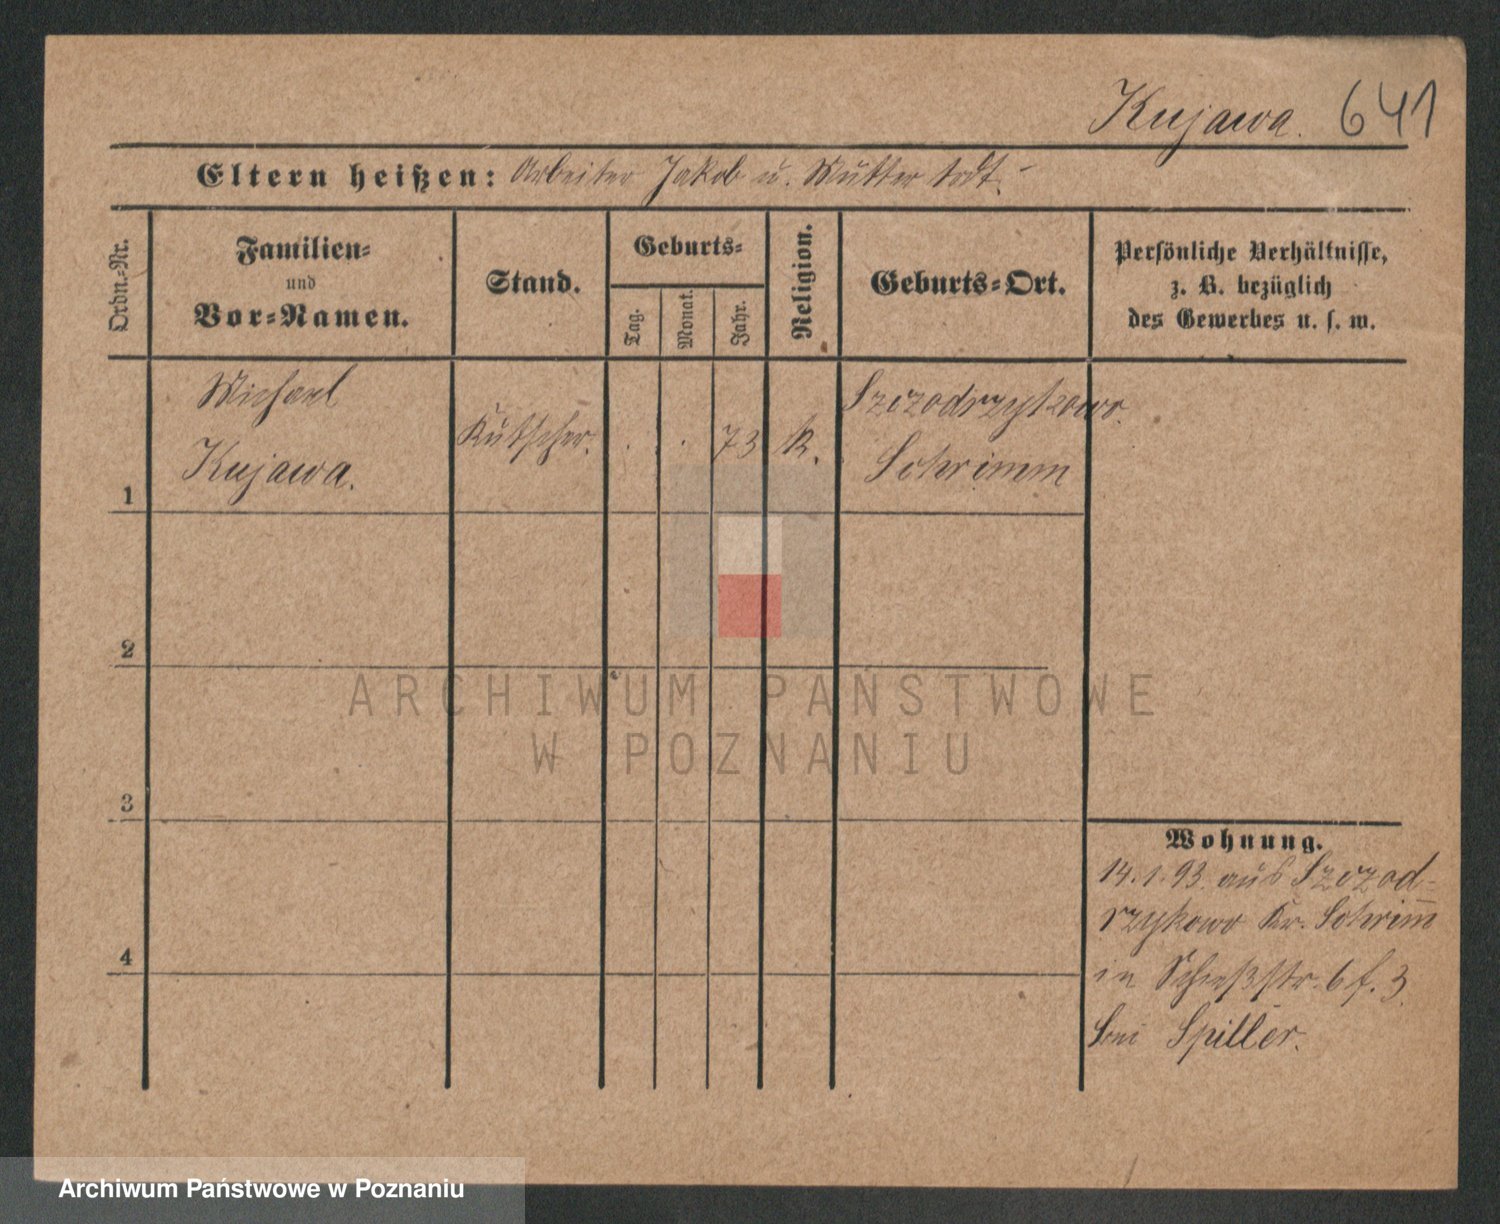 Kujawa. 641
Eltern heißen: Arbeiter Jakob u. Mutter todt.
Ordn.-Nr.
Familien-
und
Vor-Namen.
Stand.
Geburts-
Tag.
Monat.
Jahr.
Religion.
Geburts-Ort.
Persönliche Verhältnisse,
z. B. bezüglich
des Gewerbes u. s. w.
Michael
Kujawa.
Kutscher.
73
k.
Szczodrzykowo
Schrimm
1
2
3
4
ARCHIWUM PAŃSTWOWE
W POZNANIU
Wohnung.
14.1.93. aus Szczod-
rzykowo Kr. Schrim̅
in Schießstr. 6 f. 3
bei Spiller.
Archiwum Państwowe w Poznaniu